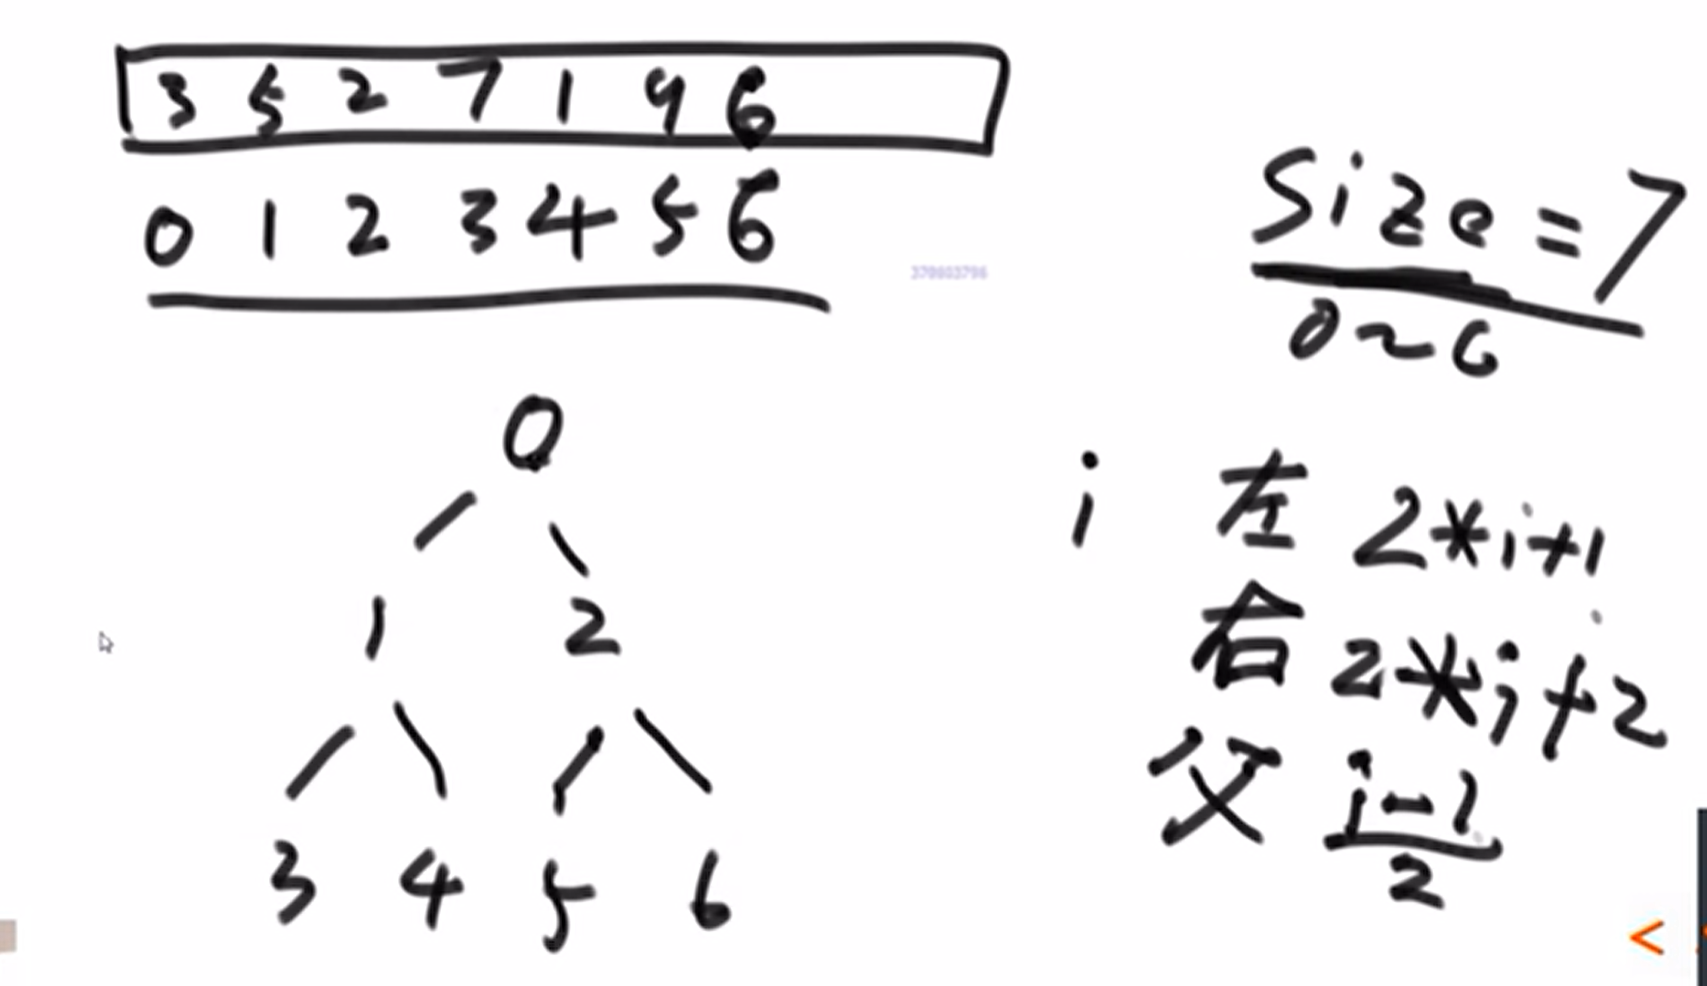 3 5 2 7 1 9 6
0 1 2 3 4 5 6
370603796
Size=7
0~6
0
1 2
3 4 5 6
i 左 2*i+1
右 2*i+2
父 i-1
2